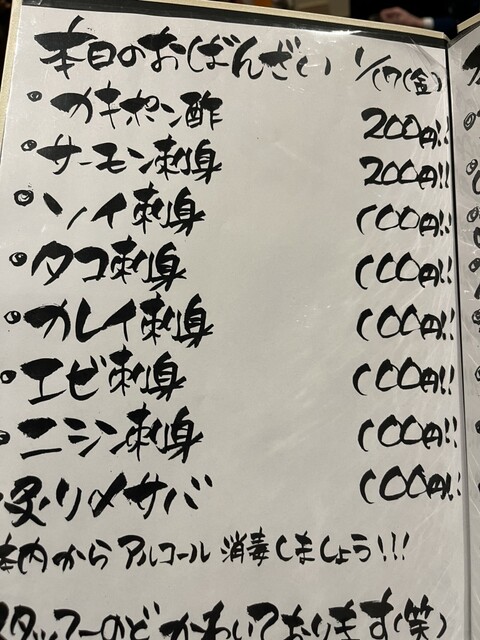 本日のおばんざい 1/17(金)
・カキポン酢 200円!!
・サーモン刺身 200円!!
・ソイ刺身 100円!!
・タコ刺身 100円!!
・カレイ刺身 100円!!
・エビ刺身 100円!!
・ニシン刺身 100円!!
・炙り〆サバ 100円!!
体内からアルコール消毒しましょう!!!
スタッフのどかわいております(笑)